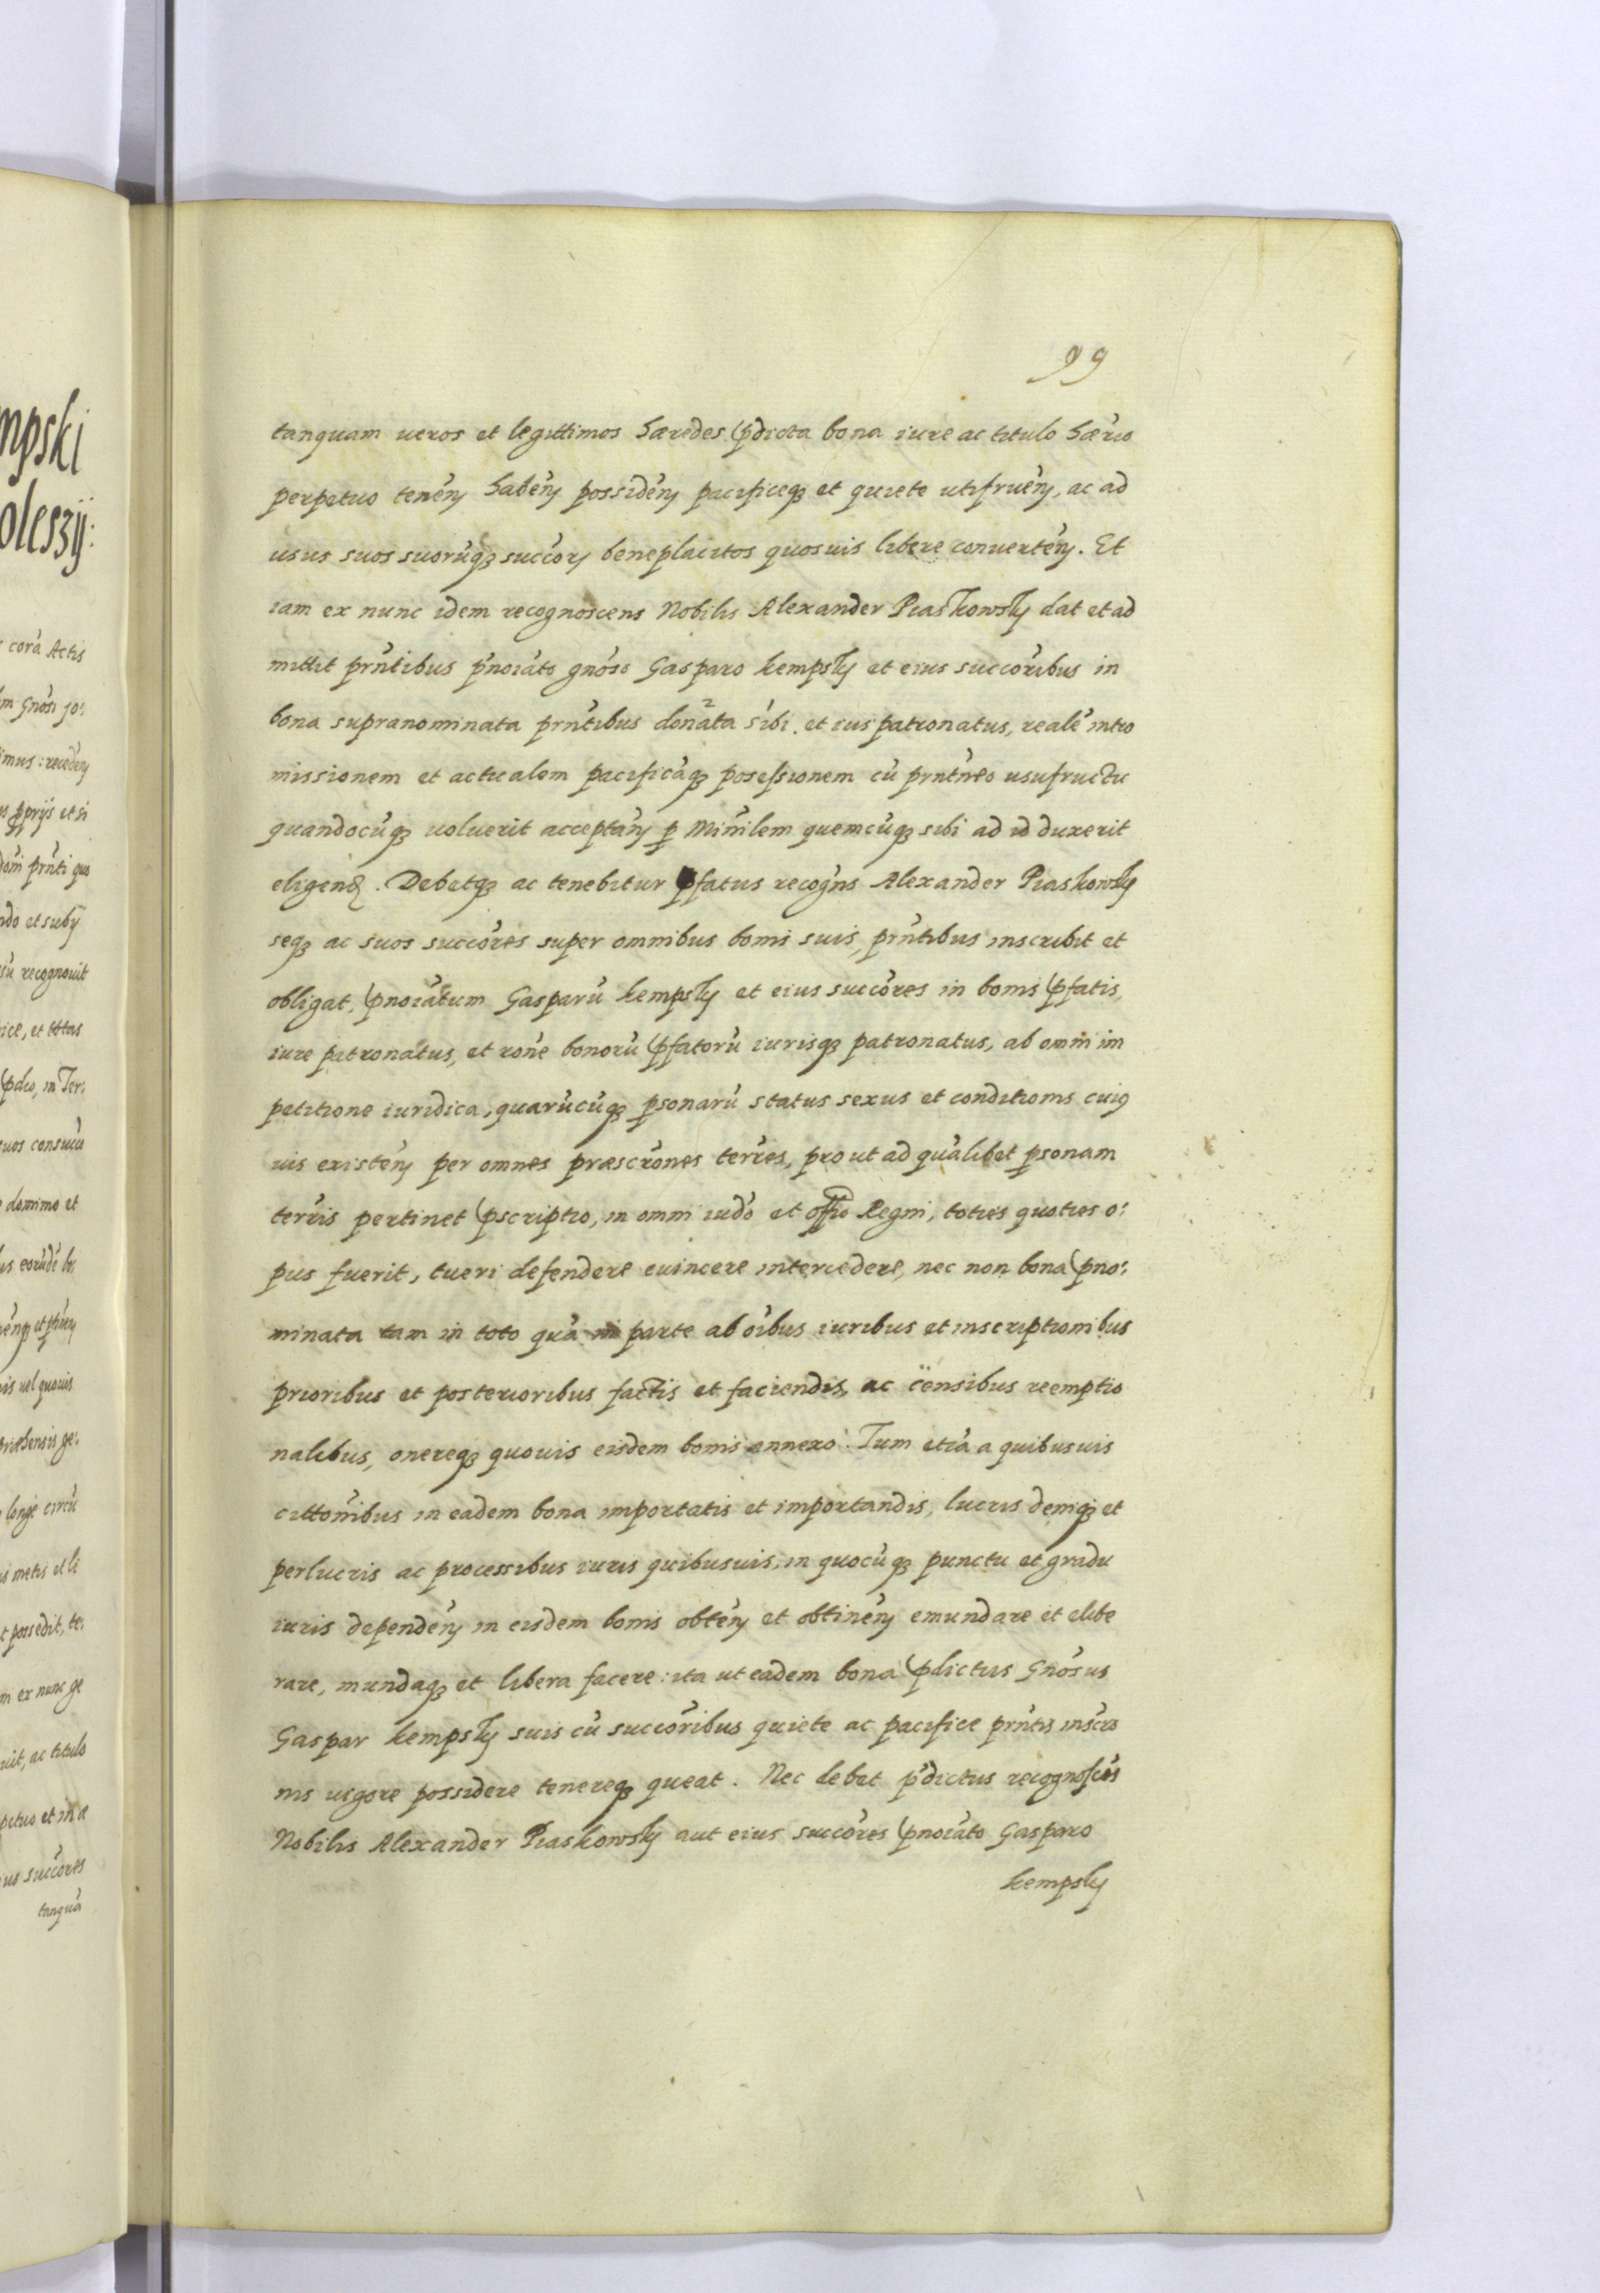 99
tanquam ueros et legittimos hæredes pdicta bona iure ac titulo hærio
perpetuo tenen̄ haben̄ possiden̄ pacificeqȝ et quiete utifruen̄, ac ad
usus suos suorūqȝ succor̄ beneplacitos quosuis libere conuerten̄. Et
iam ex nunc idem recognoscens Nobilis Alexander Piaskowsky dat et ad
mittit prn̄tibus pnoiāto gnōso Gasparo Kempsky et eius succōribus in
bona supranominata prn̄tibus donāta sibi. et ius patronatus, realē intro
missionem et actualem pacificāqȝ posessionem cū prntn̄eo usufructu
quandocūqȝ uoluerit acceptan̄ p Min̄ilem quemcūqȝ sibi ad id duxerit
eligend. Debetqȝ ac tenebitur pfatus recogn̄s Alexander Piaskowsky
seqȝ ac suos succōres super omnibus bonis suis, prn̄tibus inscribit et
obligat, pnoiātum Gasparū Kempsky et eius succōres in bonis pfatis,
iure patronatus, et ron̄e bonorū pfatorū iurisqȝ patronatus, ab omni im
petitione iuridica, quarūcūqȝ psonarū status sexus et conditionis cuiꝯ
uis existen̄ per omnes præscrōnes terr̄es, prout ad quālibet psonam
terr̄is pertinet pscriptio, in omni iudō et offio Regni, toties quoties o:
pus fuerit, tueri defendere euincere intercedere, nec non bona pno:
minata tam in toto quā in parte ab oībus iuribus et inscriptionibus
prioribus et posterioribus factis et faciendis, ac censibus reemptio
nalibus, onereqȝ quouis eisdem bonis annexo. Tum etiā a quibusuis
cittonībus in eadem bona importatis et importandis, lucris deniqȝ et
perlucris ac processibus iuris quibusuis, in quocūqȝ punctu et gradu
iuris dependen̄ in eisdem bonis obten̄ et obtinen̄ emundare et elibe
rare, mundaqȝ et libera facere: ita ut eadem bona pdictus Gnōsus
Gaspar Kempsky suis cū succōribus quiete ac pacifice prn̄tis inscrō
nis uigore possidere tenereqȝ queat. Nec debet pdictus recognoscēs
Nobilis Alexander Piaskowsky aut eius succōres pnoiāto Gasparo
Kempsky
mpski
oleszij:
corā Actis
m Gnōsi jo:
imus: receden̄
pprijs et si
dom̄ prn̄ti quo
ndo et subij
sū recognouit
ice, et totas
pdio, in Ter:
uos consuuu
domino et
us eorūdē b
is uel quouis
ge:
longe circū
is metis et li
t possedit, te:
m ex nunc ge
uit, ac titulo
petuo et in æ
us succōres
tanquā